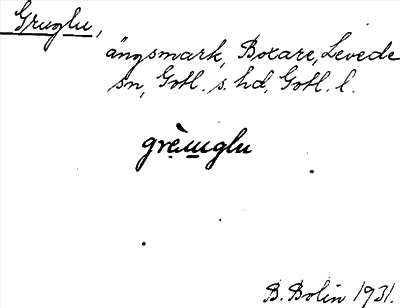 Gruglu,
ängsmark, Botare, Levede
sn, Gotl. s. hd, Gotl. l.
grèuglu
B. Bolin 1931.